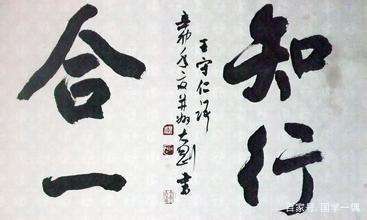 知行
合一
王守仁语
百家号·国学一偶